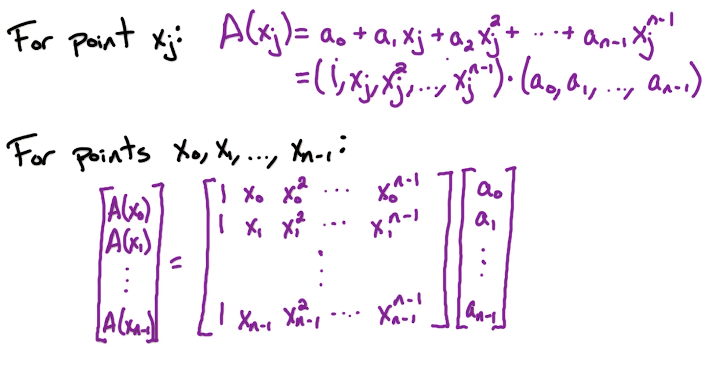 For point xⱼ: A(xⱼ) = a₀ + a₁xⱼ + a₂xⱼ² + ⋯ + aₙ₋₁xⱼⁿ⁻¹
= (1, xⱼ, xⱼ², ..., xⱼⁿ⁻¹) · (a₀, a₁, ..., aₙ₋₁)
For points x₀, x₁, ..., xₙ₋₁:
[A(x₀)] [1 x₀ x₀² ⋯ x₀ⁿ⁻¹] [a₀]
[A(x₁)] [1 x₁ x₁² ⋯ x₁ⁿ⁻¹] [a₁]
[⋮] = [⋮] [⋮]
[A(xₙ₋₁)] [1 xₙ₋₁ xₙ₋₁² ⋯ xₙ₋₁ⁿ⁻¹] [aₙ₋₁]